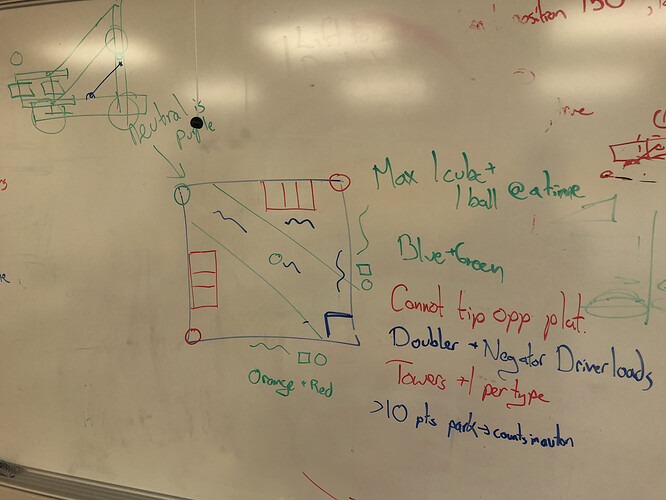 position 150
Neutral is
purple
Max 1 cube +
1 ball @ a time
Blue + Green
Cannot tip opp plat.
Doubler + Negator Driverloads
Towers +1 per type
Orange + Red
>10 pts park → counts in auton